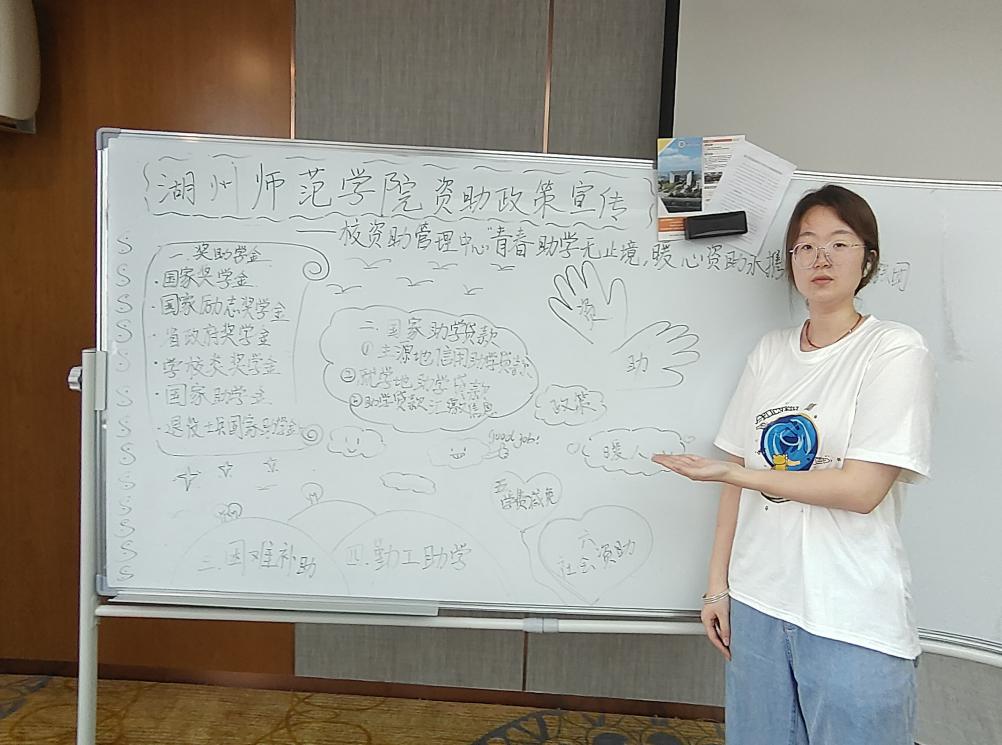 湖州师范学院资助政策宣传
——校资助管理中心"青春助学无止境,暖心资助永携
团
一.奖助学金
·国家奖学金
·国家励志奖学金
·省政府奖学金
·学校类奖学金
·国家助学金
·退役士兵国家助学金
二.国家助学贷款
①生源地信用助学贷款
②就学地助学贷款
③助学贷款汇款信息
资
助
政策
暖人
good job!
三.困难补助
四.勤工助学
五
学费减免
六
社会资助